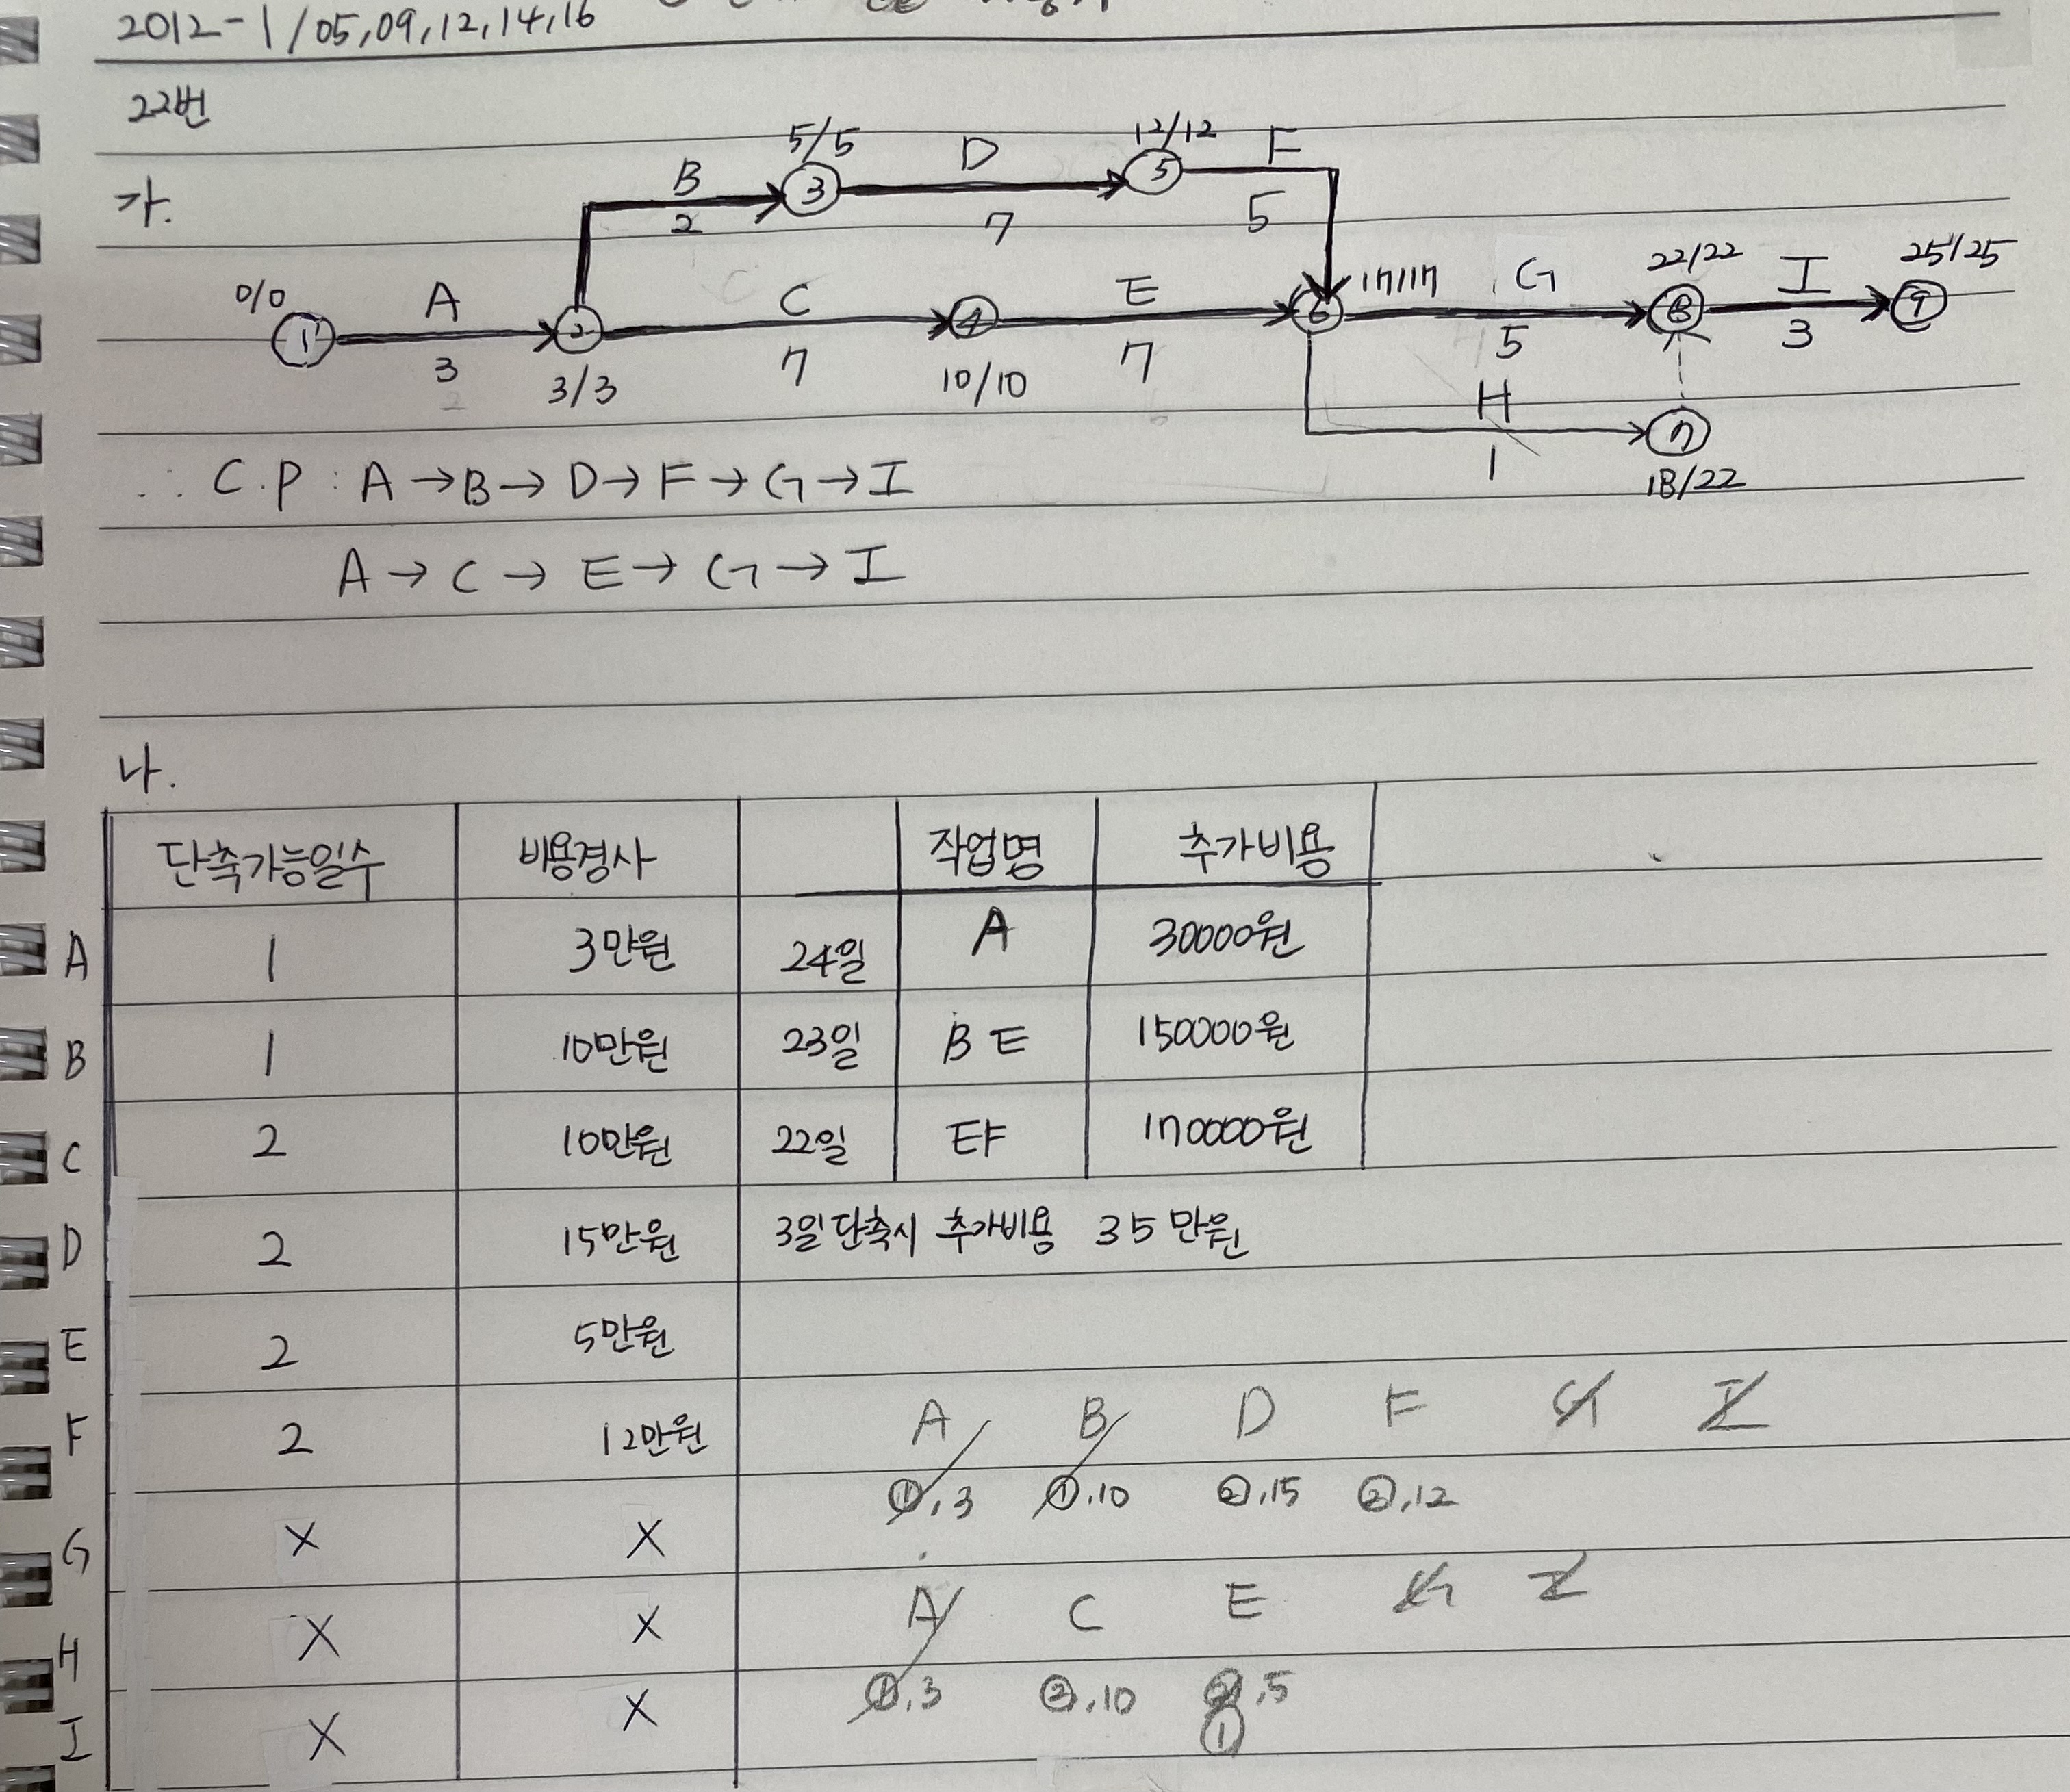 2012-1/05,09,12,14,16
22번
가.
5/5 12/12
B 3 D 5 F
2 7 5
0/0 A C E 17/17 G 22/22 I 25/25
1 2 4 6 8 9
3 7 7 5 3
3/3 10/10
H 7
1
18/22
∴ C.P : A→B→D→F→G→I
A→C→E→G→I
나.
단축가능일수 비용경사 작업명 추가비용
A 1 3만원 24일 A 30000원
B 1 10만원 23일 B E 150000원
C 2 10만원 22일 EF 170000원
D 2 15만원 3일 단축시 추가비용 35만원
E 2 5만원
F 2 12만원 A B D F G I
①,3 ①,10 ②,15 ②,12
G X X
H X X A C E G I
①,3 ②,10 ②,5
I X X ①